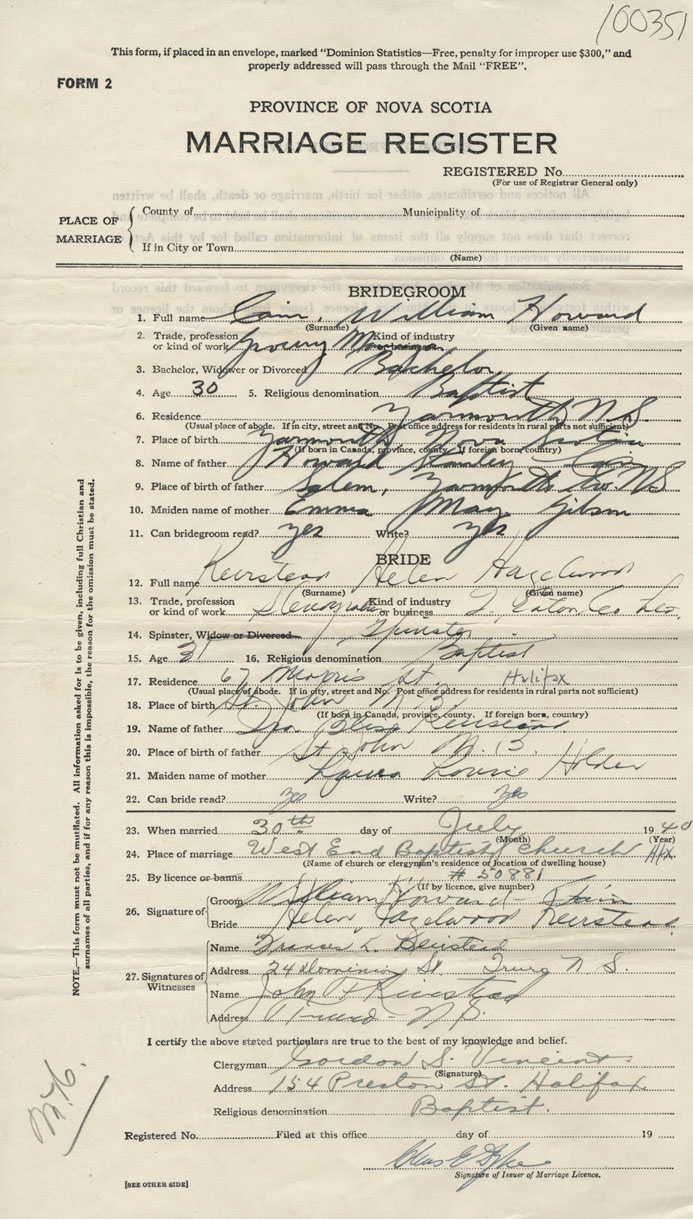 100351
This form, if placed in an envelope, marked "Dominion Statistics—Free, penalty for improper use $300," and
properly addressed will pass through the Mail "FREE".
FORM 2
PROVINCE OF NOVA SCOTIA
MARRIAGE REGISTER
REGISTERED No.
(For use of Registrar General only)
PLACE OF MARRIAGE
County of Municipality of
If in City or Town
(Name)
BRIDEGROOM
1. Full name Cain, William Howard
(Surname) (Given name)
2. Trade, profession or kind of work Grocery Kind of industry or business
3. Bachelor, Widower or Divorced Bachelor
4. Age 30 5. Religious denomination Baptist
6. Residence Yarmouth N.S.
(Usual place of abode. If in city, street and No. Post office address for residents in rural parts not sufficient)
7. Place of birth Yarmouth, Nova Scotia
(If born in Canada, province, county. If foreign born, country)
8. Name of father Howard Stanley Cain
9. Place of birth of father Salem, Yarmouth Co. N.S
10. Maiden name of mother Emma May Gibson
11. Can bridegroom read? yes Write? yes
BRIDE
12. Full name Keirstead Helen Hazelwood
(Surname) (Given name)
13. Trade, profession or kind of work Stenographer Kind of industry or business T. Eaton Co Ltd.
14. Spinster, Widow or Divorced Spinster
15. Age 31 16. Religious denomination Baptist
17. Residence 67 Morris St. Halifax
(Usual place of abode. If in city, street and No. Post office address for residents in rural parts not sufficient)
18. Place of birth St. John N.B.
(If born in Canada, province, county. If foreign born, country)
19. Name of father Keirstead
20. Place of birth of father St. John N.B.
21. Maiden name of mother Laura Louise Holder
22. Can bride read? yes Write? yes
23. When married 30th day of July 1940
(Month) (Year)
24. Place of marriage West End Baptist Church Hfx
(Name of church or clergyman's residence of location of dwelling house)
25. By licence or banns # 50881
(If by licence, give number)
26. Signature of
Groom William Howard Cain
Bride Helen Hazelwood Keirstead
27. Signatures of Witnesses
Name Frances L. Keirstead
Address 24 Dominion St. Truro N.S.
Name John Keirstead
Address Truro - N.S.
I certify the above stated particulars are true to the best of my knowledge and belief.
Clergyman Gordon S. Vincent
(Signature)
Address 154 Preston St. Halifax
Religious denomination Baptist.
Registered No. Filed at this office day of 19
Signature of Issuer of Marriage Licence.
[SEE OTHER SIDE]
NOTE.—This form must not be mutilated. All information asked for is to be given, including full Christian and
surnames of all parties, and if for any reason this is impossible, the reason for the omission must be stated.